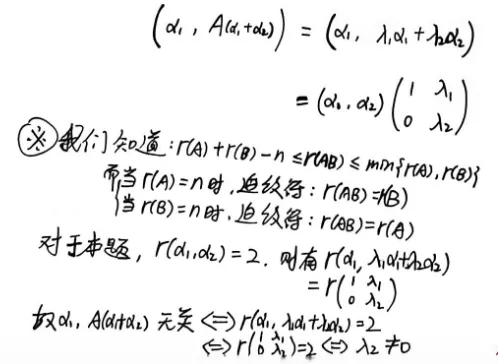 (α₁, A(α₁+α₂)) = (α₁, λ₁α₁+λ₂α₂)
= (α₁, α₂) (1 λ₁
0 λ₂)
※ 我们知道: r(A)+r(B)-n ≤ r(AB) ≤ min{r(A), r(B)}
而当 r(A)=n 时, 迫敛得: r(AB)=r(B)
当 r(B)=n 时, 迫敛得: r(AB)=r(A)
对于本题, r(α₁,α₂)=2. 则有 r(α₁, λ₁α₁+λ₂α₂)
= r(1 λ₁
0 λ₂)
故 α₁, A(α₁+α₂) 无关 ⇔ r(α₁, λ₁α₁+λ₂α₂)=2
⇔ r(1 λ₁
0 λ₂)=2 ⇔ λ₂≠0